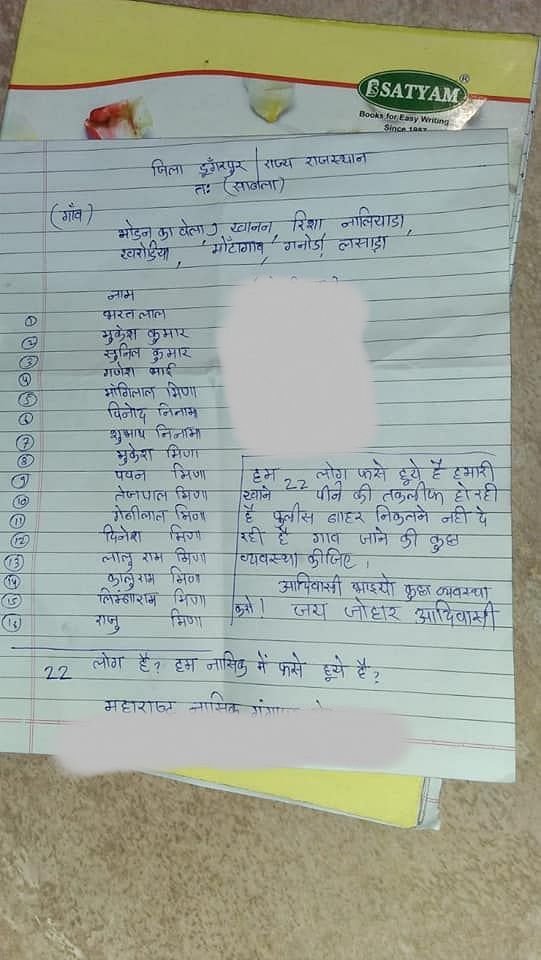 SATYAM®
Books for Easy Writing
Since 1987
जिला डूँगरपुर | राज्य राजस्थान
तः (साबला)
(गाँव)
भोडन का वेला, खानन, रिछा, नालियाडा,
खरोडिया, मोटागाव, गनोडा, लसाडा
नाम
① भरत लाल
② मुकेश कुमार
③ सुनिल कुमार
④ गणेश भाई
⑤ मांगिलाल मिणा
⑥ विनोद निनामा
⑦ शुभाष निनामा
⑧ मुकेश मिणा
⑨ पवन मिणा
⑩ तेजपाल मिणा
⑪ गेबीलाल मिणा
⑫ दिनेश मिणा
⑬ लालु राम मिणा
⑭ कालुराम मिणा
⑮ लिम्बाराम मिणा
⑯ राजु मिणा
हम 22 लोग फसे हूये है हमारी
खाने पीने की तकलीफ हो रही
है पुलीस बाहर निकलने नही दे
रही है गाव जाने की कुछ
व्यवस्था कीजिए,
आदिवासी भाइयो कुछ व्यवस्था
करो! जय जोहार आदिवासी
22 लोग है? हम नासिक में फसे हूये है?
महाराष्ट नासिक